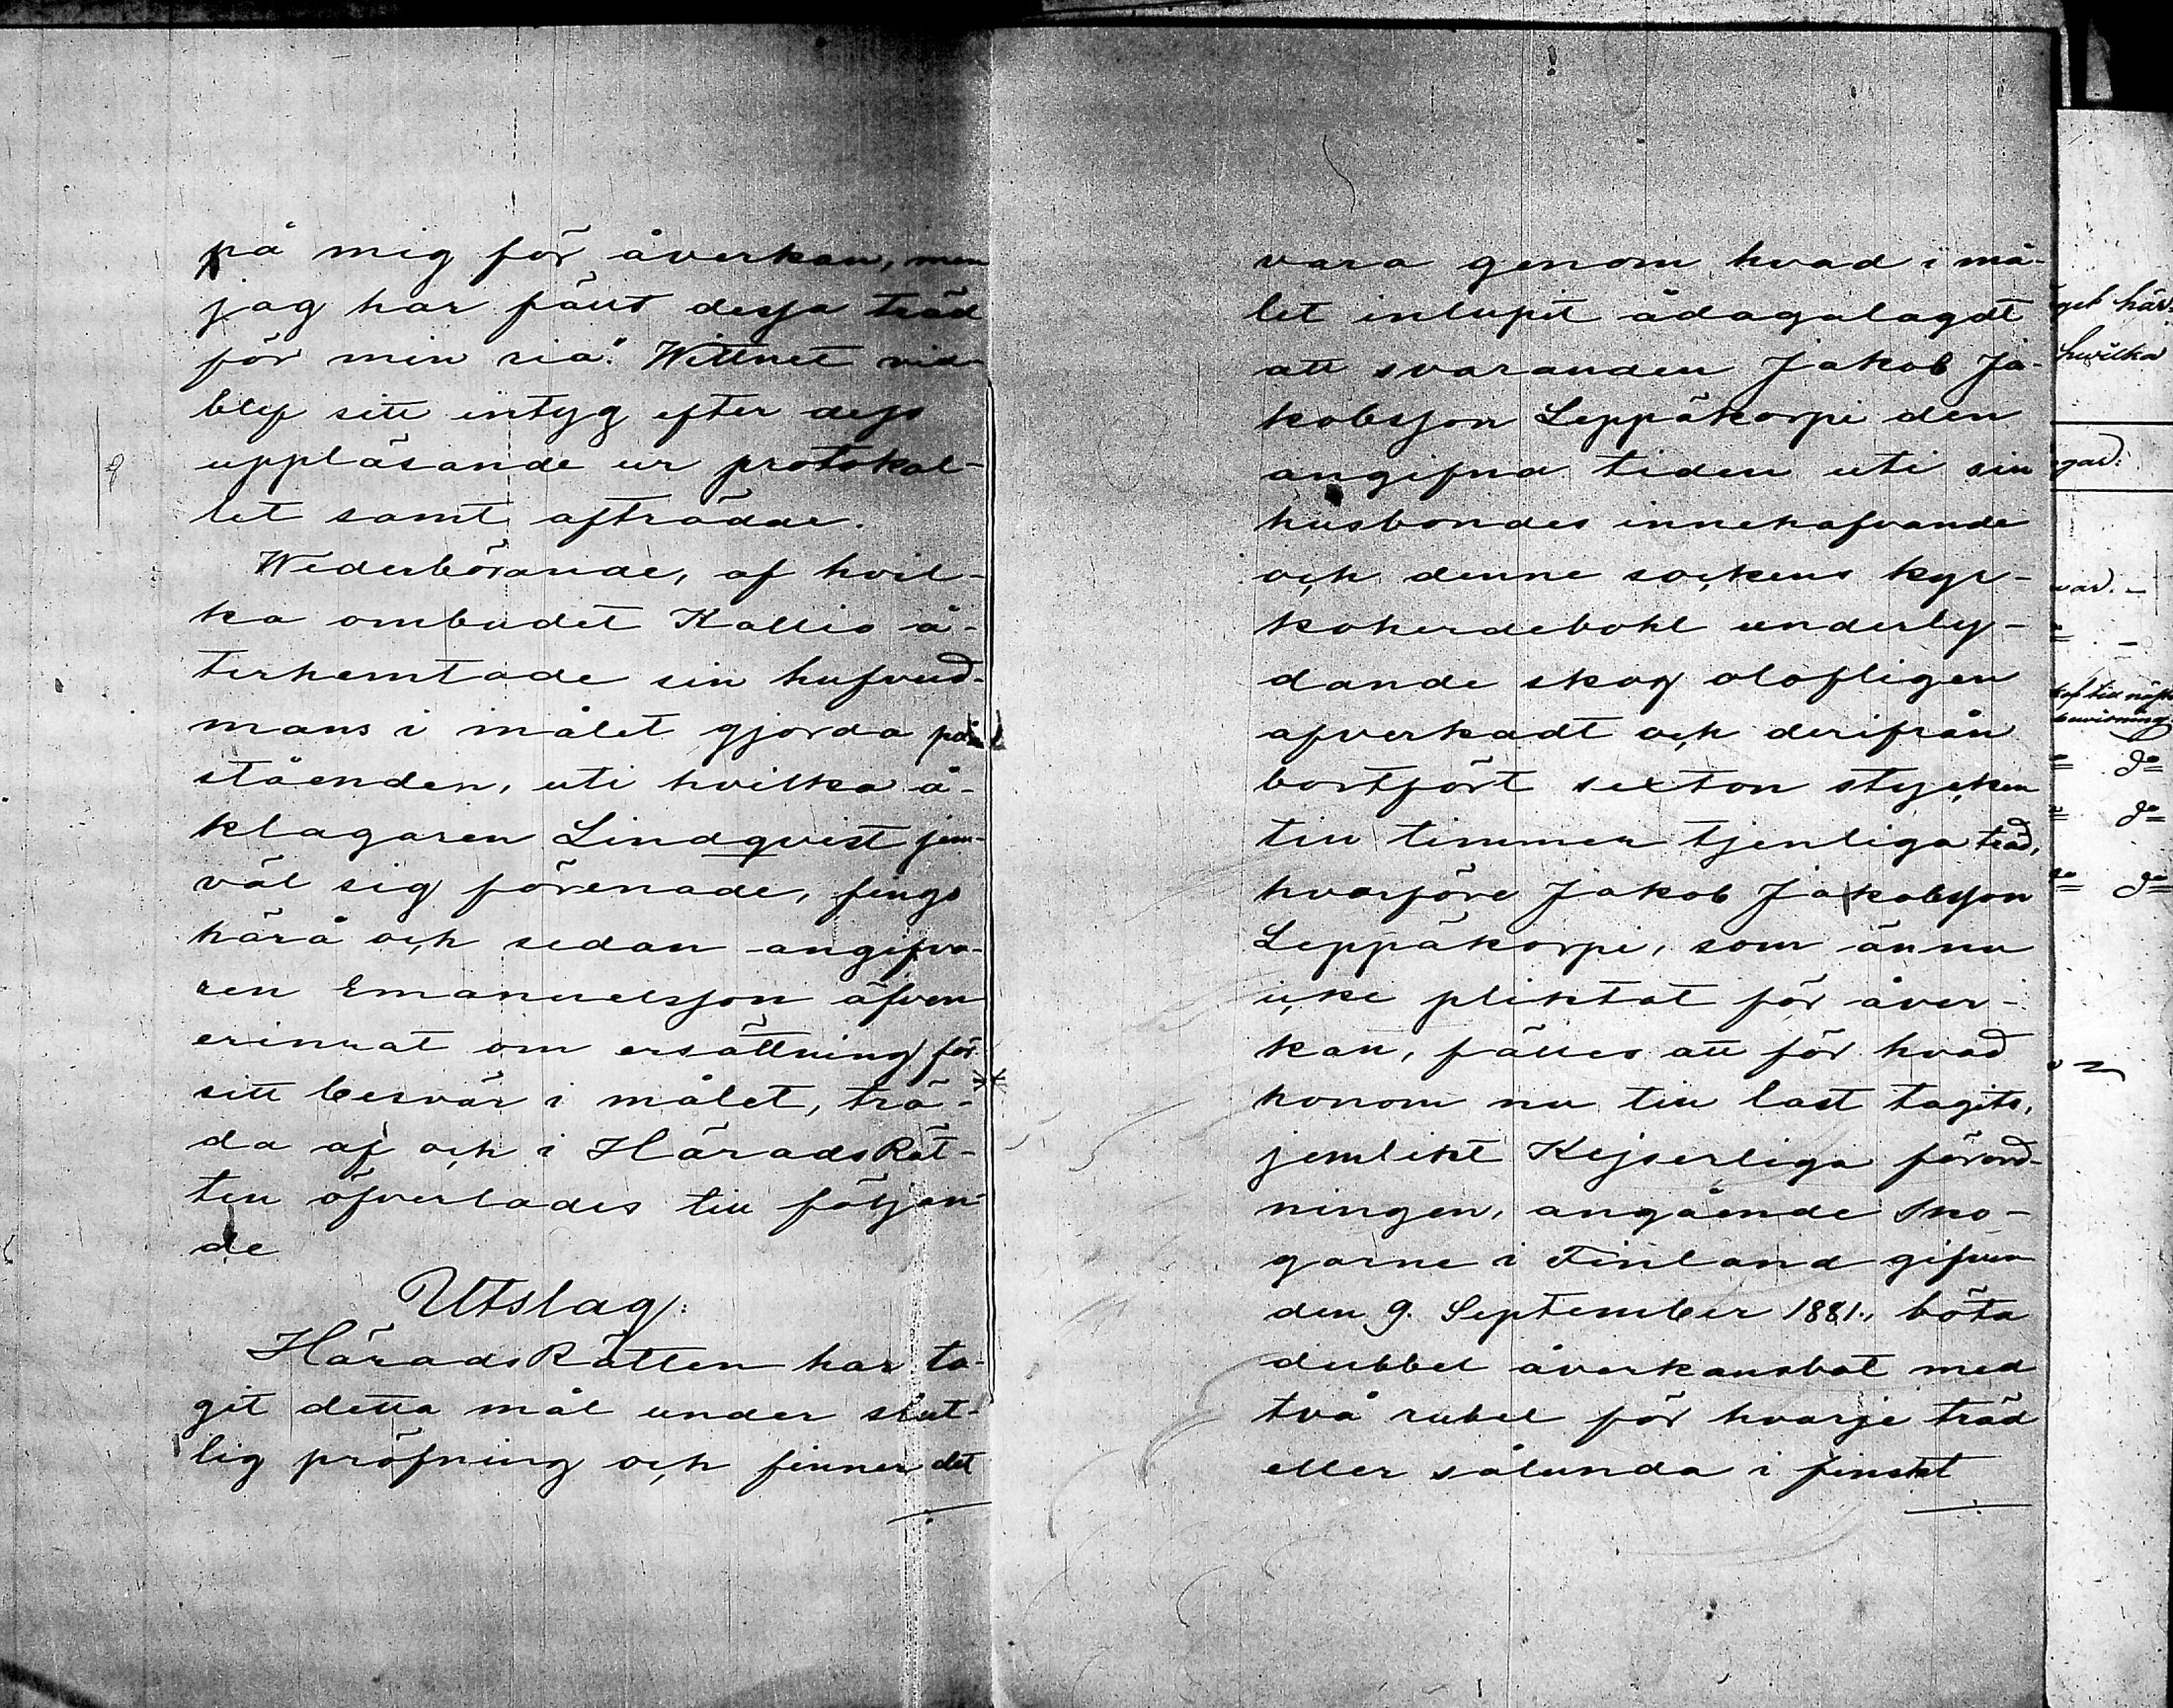 på mig för åverkan, men
jag har fällt dessa träd
för min ria". Wittnet vid-
blef sitt intyg efter dess
uppläsande ur protokol-
let samt afträdde.
Wederbörande, af hvil-
ka ombudet Kallio å-
terhemtade sin hufvud-
mans i målet gjorda på-
ståenden, uti hvilka å-
klagaren Lindqvist jem-
väl sig förenade, fingo
härå och sedan angifva-
ren Emanuelsson äfven
erinrat om ersättning för
sitt besvär i målet, trä-
da af och i HäradsRät-
ten öfverlades till följan-
de
Utslag:
HäradsRätten har ta-
git detta mål under slut-
lig pröfning och finner det
vara genom hvad i må-
let inlupit ådagalagdt
att svaranden Jakob Ja-
kobsson Leppäkorpi den
angifna tiden uti sin
husbondes innehafvande
och denne sockens kyr-
koherdebohl underly-
dande skog olofligen
afverkadt och derifrån
bortfört sexton stycken
till timmer tjenliga träd,
hvarföre Jakob Jakobsson
Leppäkorpi, som ännu
icke pliktat för åver-
kan, fälles att för hvad
honom nu till last tagits,
jemlikt Kejserliga förord-
ningen, angående sko-
garne i Finland gifven
den 9. September 1881., böta
dubbel åverkansbot med
två rubel för hvarje träd
eller sålunda i finskt
get här-
hvilka
gad:
vad. -